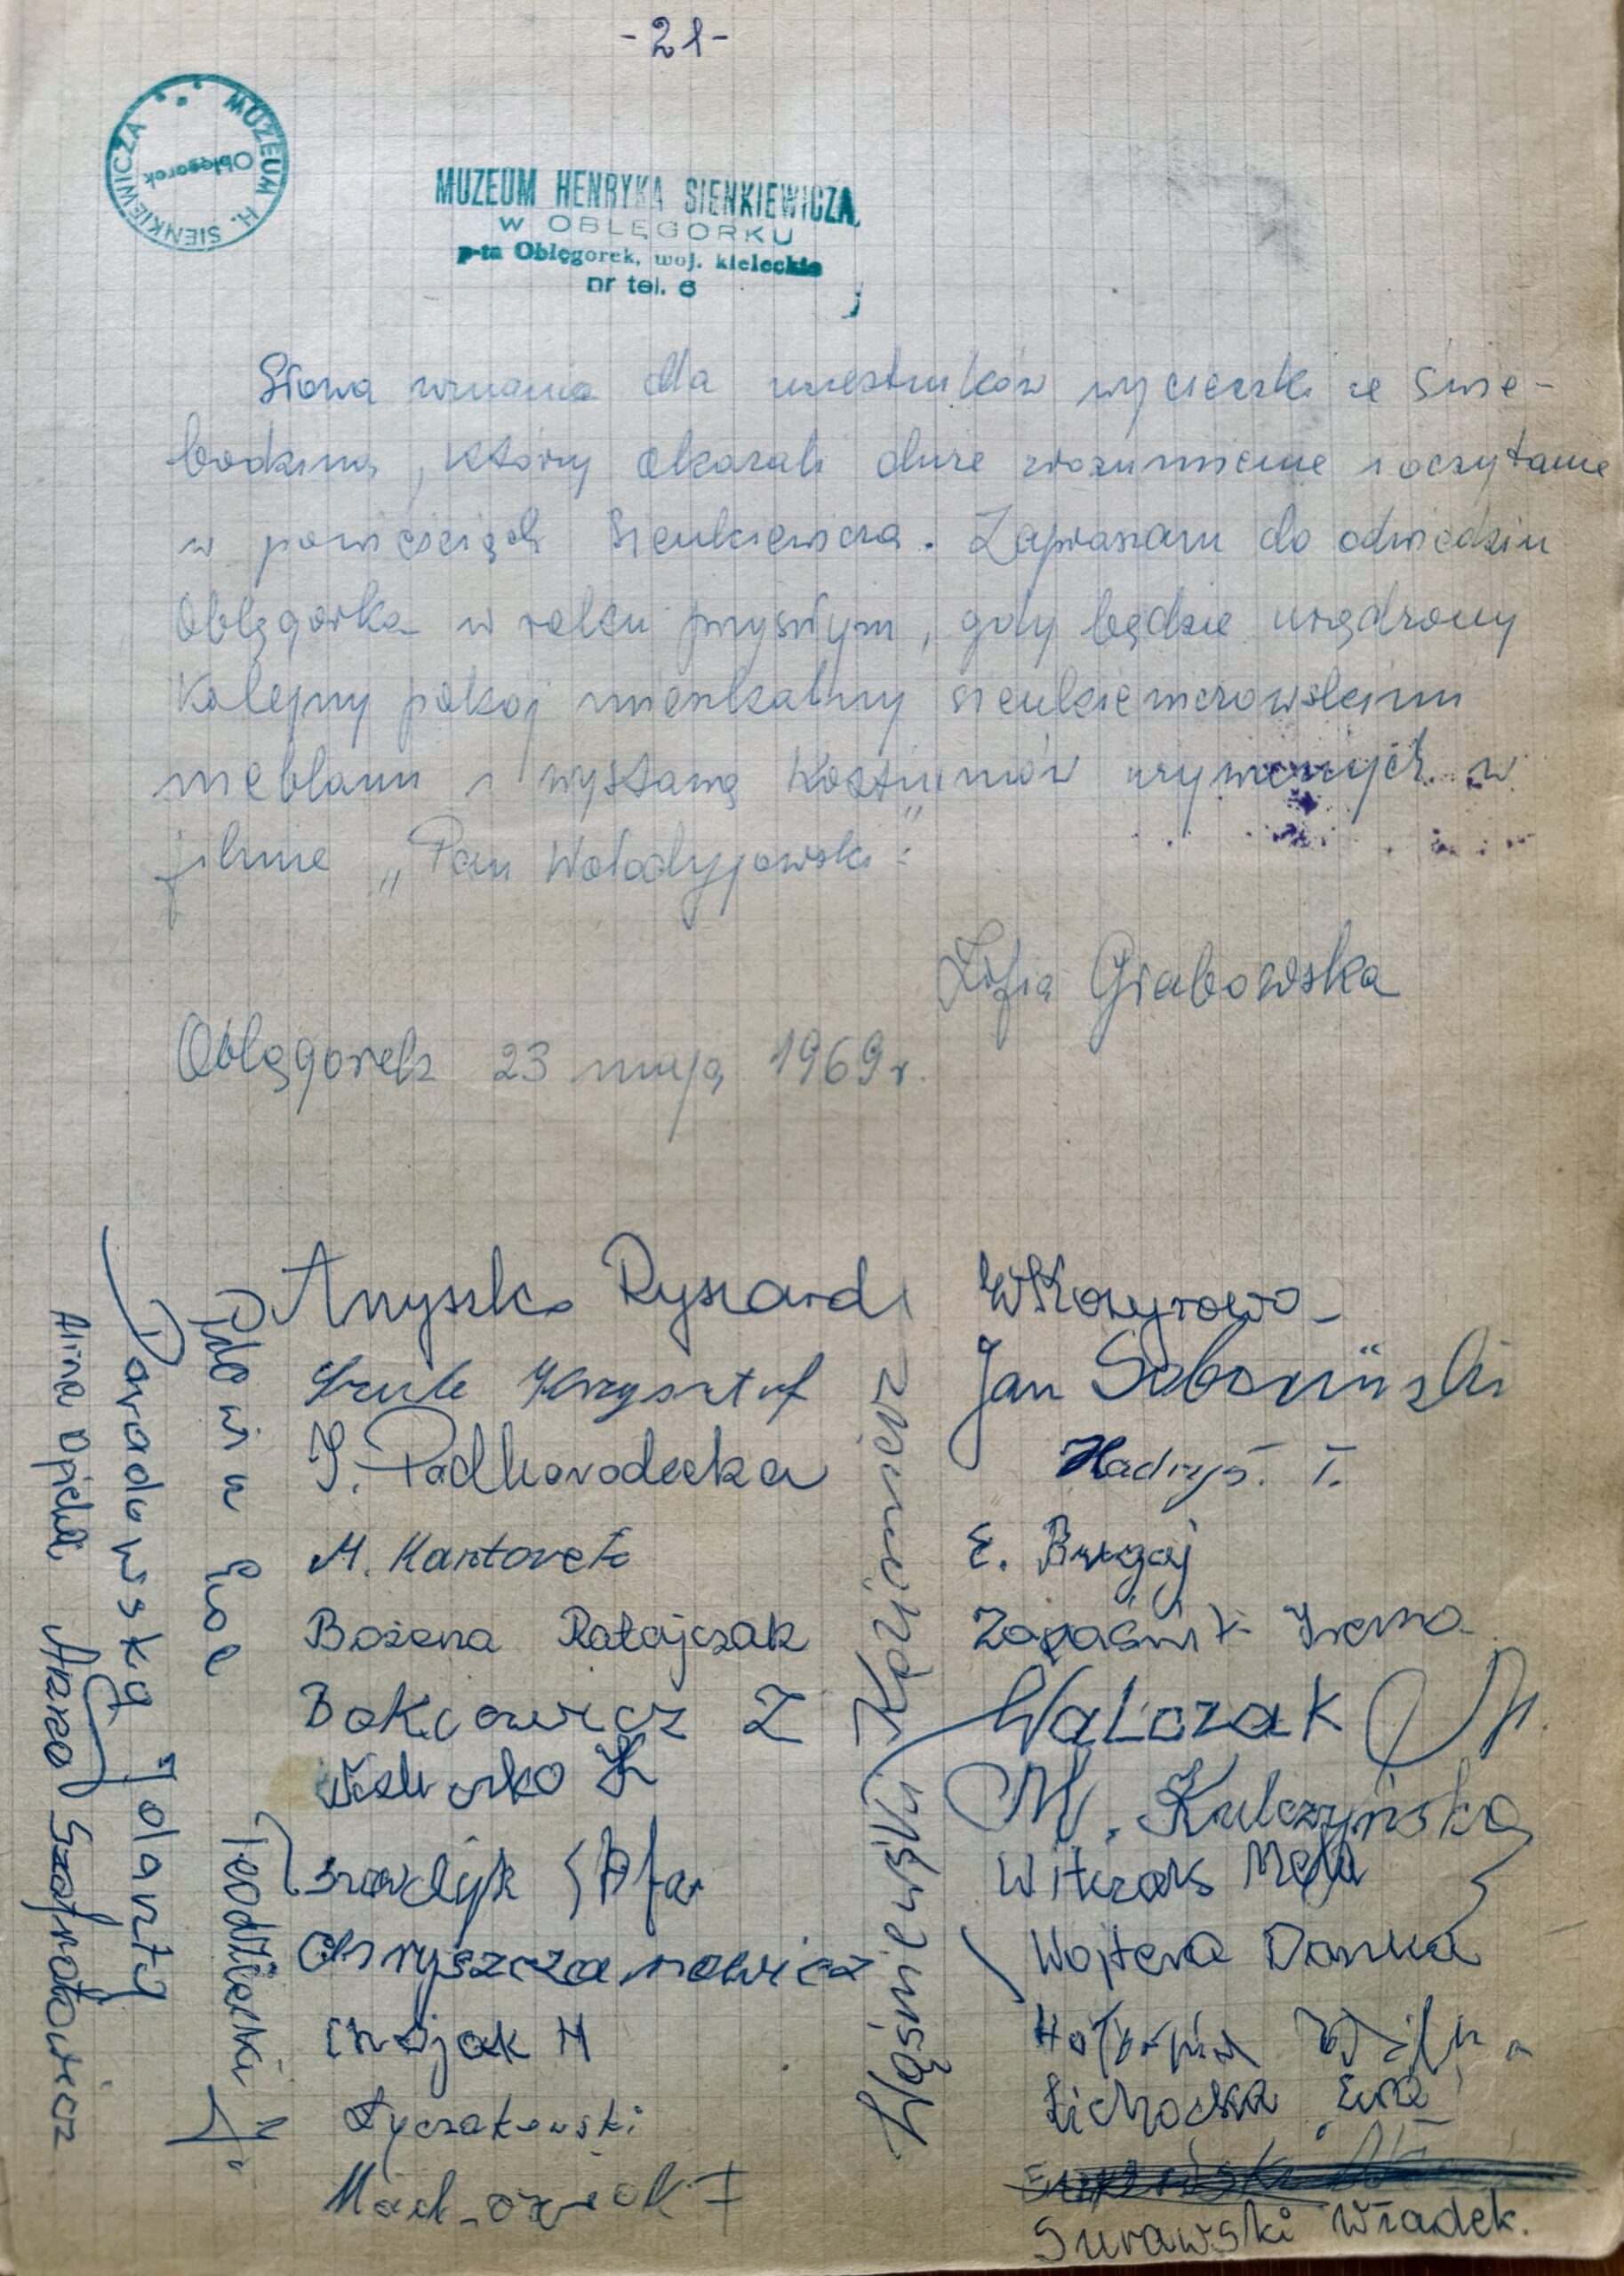 -21-
MUZEUM H. SIENKIEWICZA
Oblęgorek
MUZEUM HENRYKA SIENKIEWICZA
W OBLĘGORKU
p-ta Oblęgorek, woj. kieleckie
nr tel. 6
Słowa uznania dla uczestników wycieczki ze Świe-
bodzina, którzy okazali duże zrozumienie i oczytanie
w powieściach Sienkiewicza. Zapraszam do odwiedzin
Oblęgorka w roku przyszłym, gdy będzie urządzony
kolejny pokój mieszkalny sienkiewiczowskimi
meblami i wystawą kostiumów używanych w
filmie „Pan Wołodyjowski".
Zofia Grabowska
Oblęgorek 23 maja 1969 r.
Anyszko Ryszard
Szulc Krzysztof
J. Podhorodecka
M. Kantorek
Bożena Ratajczak
Bokcowicz Z
Z
Chryszczanowicz
Chojak H
Łyczakowski
Jan Soboniński
Hadryś. T.
E. Brygaj
Zapaśnik Irena
Walczak M.
M. Kulczyńska
Witczak
Wojtera Danka
Cichocka Ewa
Surawski Władek.
Kazimierz
Wośniewski
Edowin Ewa
Teodziecki J.
Daradowska Jolanta
Alina Opiela Anna Szafratowicz